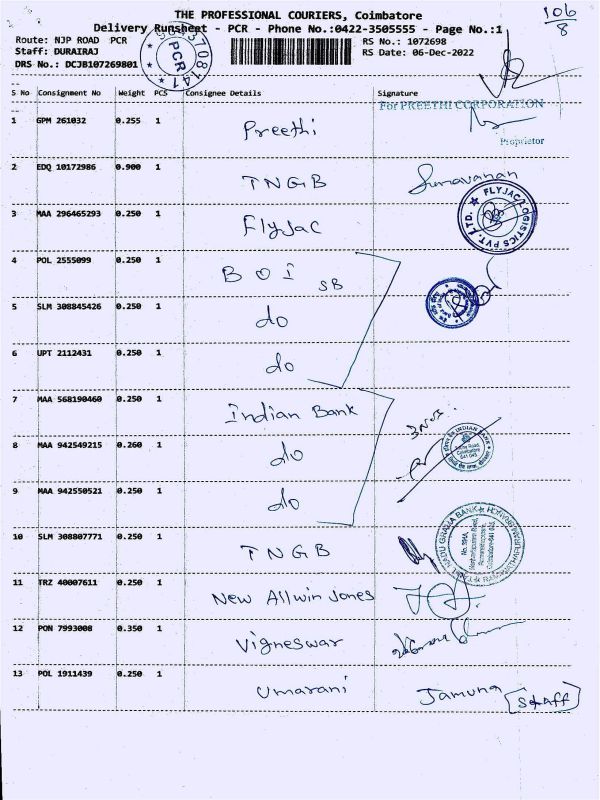 THE PROFESSIONAL COURIERS, Coimbatore
106/8
Delivery Runsheet - PCR - Phone No.:0422-3505555 - Page No.:1
Route: NJP ROAD PCR
RS No.: 1072698
Staff: DURAIRAJ
RS Date: 06-Dec-2022
DRS No.: DCJB107269801
PCR
S No Consignment No Weight PCS Consignee Details Signature
For PREETHI CORPORATION
1 GPM 261032 0.255 1 Preethi
Proprietor
2 EDQ 10172986 0.900 1 TNGB
3 MAA 296465293 0.250 1 FlyJac
FLYJAC LOGISTICS PVT. LTD.
4 POL 2555099 0.250 1 BOI SB
5 SLM 308845426 0.250 1 do
6 UPT 2112431 0.250 1 do
7 MAA 568190460 0.250 1 Indian Bank
8 MAA 942549215 0.260 1 do
INDIAN BANK
9 MAA 942550521 0.250 1 do
10 SLM 308807771 0.250 1 TNGB
11 TRZ 40007611 0.250 1 New Allwin Jones
12 PON 7993008 0.350 1 Vigneswar
13 POL 1911439 0.250 1 Umarani Jamuna [Staff]